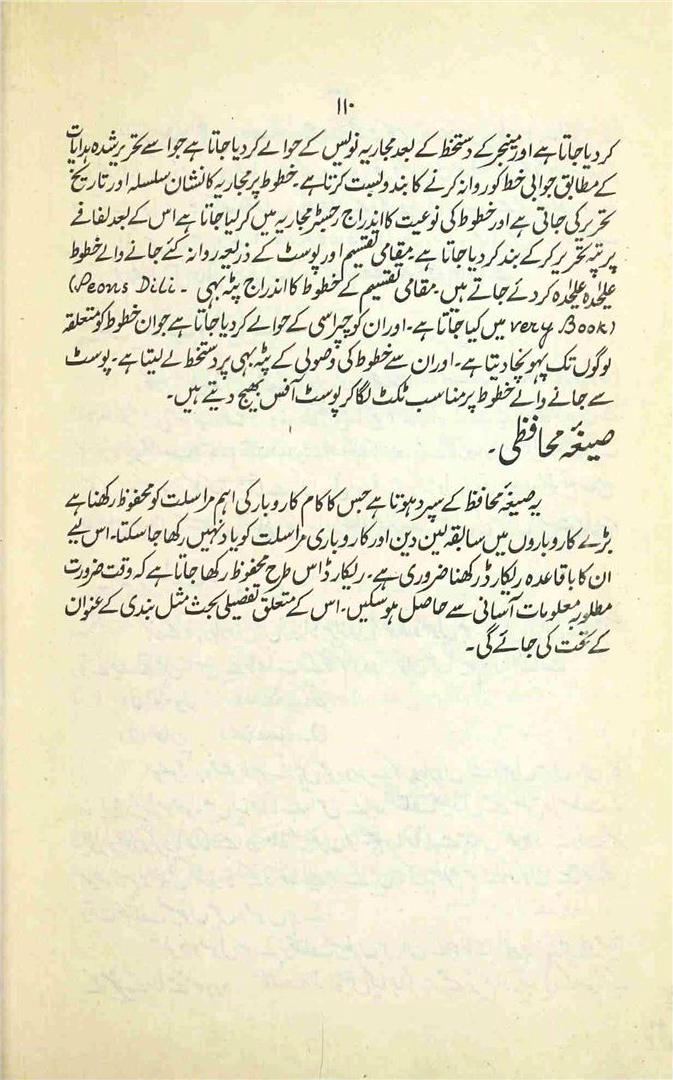 ۱۱۰
کر دیا جاتا ہے اور مینجر کے دستخط کے بعد مجاریہ نویس کے حوالے کر دیا جاتا ہے جو اسے تحریر شدہ ہدایات
کے مطابق جوابی خط کو روانہ کرنے کا بندوبست کرتا ہے۔ خطوط پر مجاریہ کا نشان سلسلہ اور تاریخ
تحریر کی جاتی ہے اور خطوط کی نوعیت کا اندراج رجسٹر مجاریہ میں کر لیا جاتا ہے اس کے بعد لفافے
پر پتہ تحریر کر کے بند کر دیا جاتا ہے۔ مقامی تقسیم اور پوسٹ کے ذریعہ روانہ کئے جانے والے خطوط
علیٰحدہ علیٰحدہ کر دئے جاتے ہیں۔ مقامی تقسیم کے خطوط کا اندراج پٹہ بہی (Peons Dili-
very Book) میں کیا جاتا ہے۔ اور ان کو چپراسی کے حوالے کر دیا جاتا ہے جو ان خطوط کو متعلقہ
لوگوں تک پہونچا دیتا ہے۔ اور ان سے خطوط کی وصولی کے پٹہ بہی پر دستخط لے لیتا ہے۔ پوسٹ
سے جانے والے خطوط پر مناسب ٹکٹ لگا کر پوسٹ آفس بھیج دیتے ہیں۔
صیغۂ محافظی۔
یہ صیغۂ محافظ کے سپرد ہوتا ہے جس کا کام کاروبار کی اہم مراسلت کو محفوظ رکھنا ہے
بڑے کاروباروں میں سابقہ لین دین اور کاروباری مراسلت کو یاد نہیں رکھا جا سکتا۔ اس لیے
ان کا باقاعدہ ریکارڈ رکھنا ضروری ہے۔ ریکارڈ اس طرح محفوظ رکھا جاتا ہے کہ وقت ضرورت
مطلوبہ معلومات آسانی سے حاصل ہو سکیں۔ اس کے متعلق تفصیلی بحث مثل بندی کے عنوان
کے تحت کی جائے گی۔